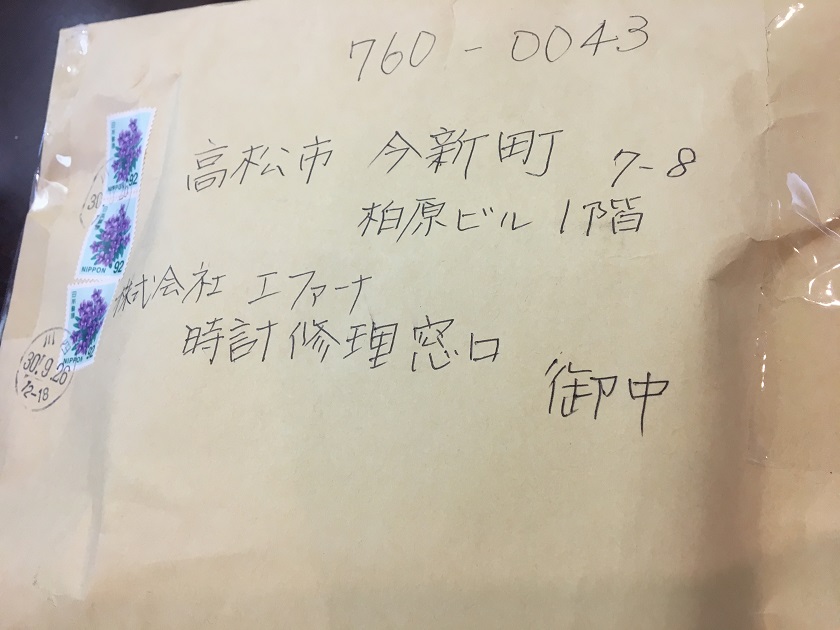 760-0043
高松市 今新町 7-8
柏原ビル 1階
株式会社 エファーナ
時計修理窓口
御中
日本郵便
NIPPON 92
NIPPON 92
日本郵便
NIPPON 92
30
川
30.9.26
12-18